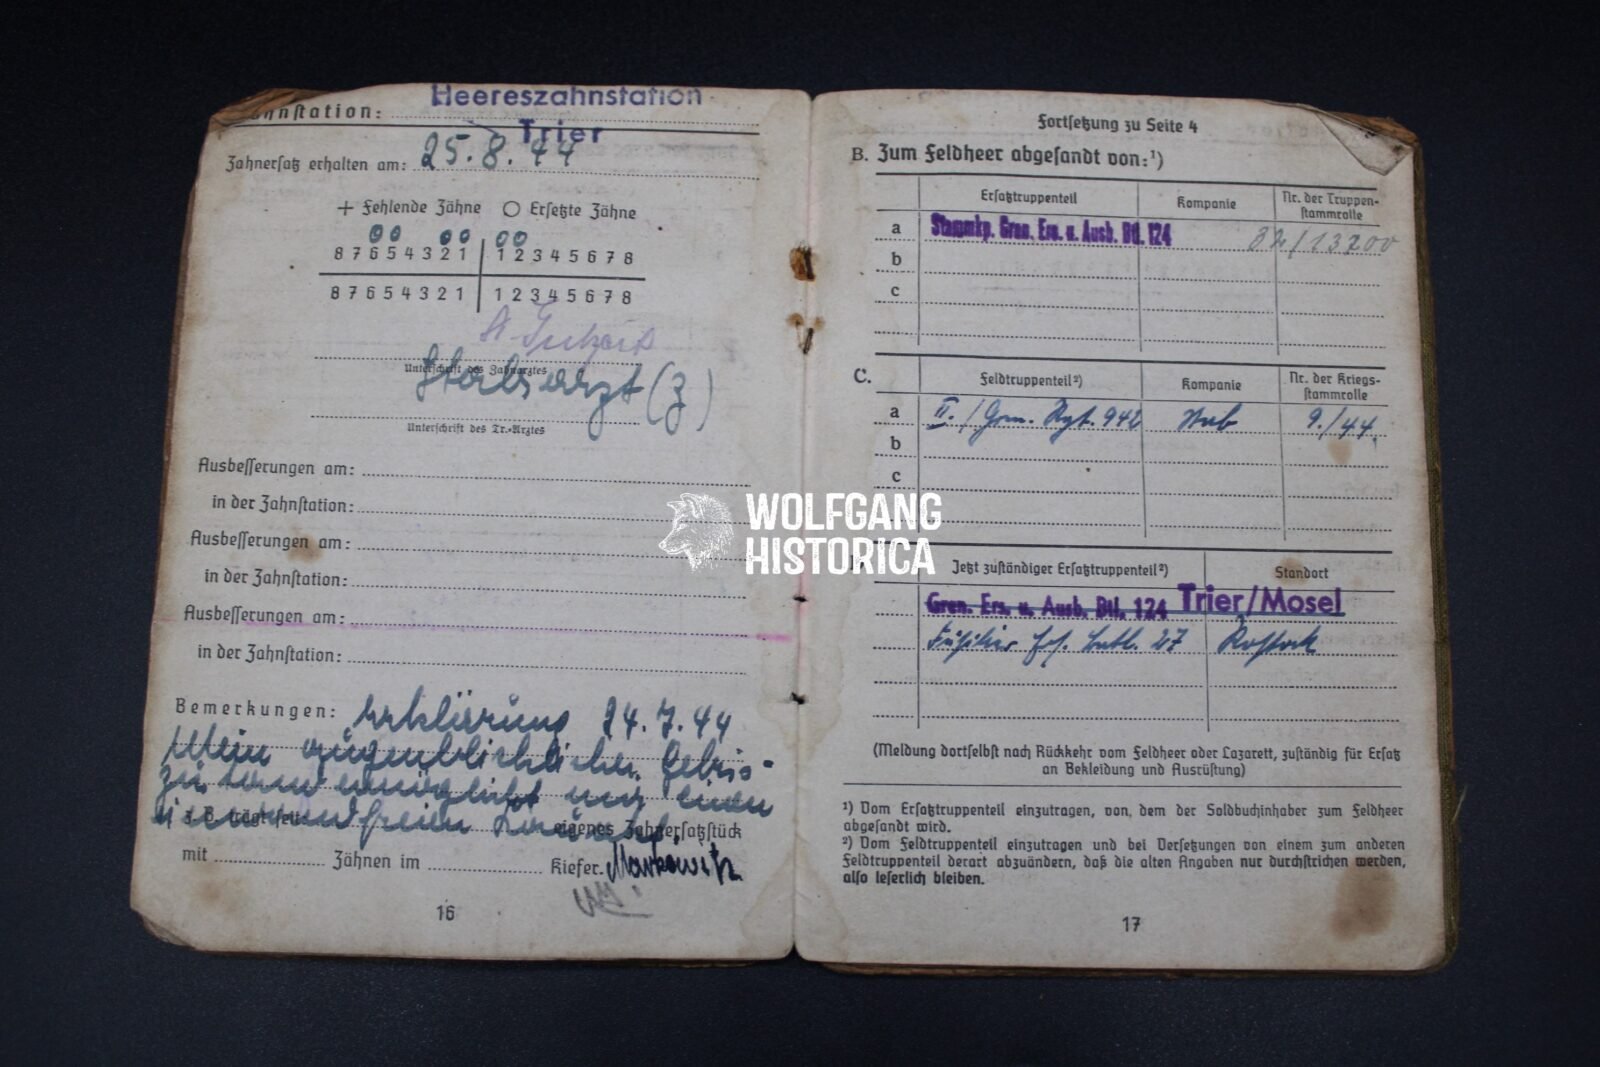 Zahnstation: Heereszahnstation
Trier
Zahnersatz erhalten am: 25.8.44
+ Fehlende Zähne O Ersetzte Zähne
8 7 6 5 4 3 2 1 1 2 3 4 5 6 7 8
8 7 6 5 4 3 2 1 1 2 3 4 5 6 7 8
Unterschrift des Zahnarztes
Stabsarzt (Z)
Unterschrift des Tr.-Arztes
Ausbesserungen am:
in der Zahnstation:
Ausbesserungen am:
in der Zahnstation:
Ausbesserungen am:
in der Zahnstation:
Bemerkungen: Erklärung 24.7.44
Mein augenblicklicher Gebis-
zustand ermöglicht mir einen
einwandfreien
z. B. trägt seit eigenes Zahnersatzstück
mit Zähnen im Kiefer. Markowitz
16
Fortsetzung zu Seite 4
B. Zum Feldheer abgesandt von:¹)
Ersatztruppenteil Kompanie Nr. der Truppen-
stammrolle
a Stammkp. Gren. Ers. u. Ausb. Btl. 124
b
c
C. Feldtruppenteil²) Kompanie Nr. der Kriegs-
stammrolle
a II./Gren. Rgt. 942 Stab 9./44.
b
c
Jetzt zuständiger Ersatztruppenteil²) Standort
Gren. Ers. u. Ausb. Btl. 124 Trier/Mosel
Füsilier Ers. Batl. 27 Rostock
(Meldung dortselbst nach Rückkehr vom Feldheer oder Lazarett, zuständig für Ersatz
an Bekleidung und Ausrüstung)
¹) Vom Ersatztruppenteil einzutragen, von dem der Soldbuchinhaber zum Feldheer
abgesandt wird.
²) Vom Feldtruppenteil einzutragen und bei Versetzungen von einem zum anderen
Feldtruppenteil derart abzuändern, daß die alten Angaben nur durchstrichen werden,
also leserlich bleiben.
17
WOLFGANG
HISTORICA